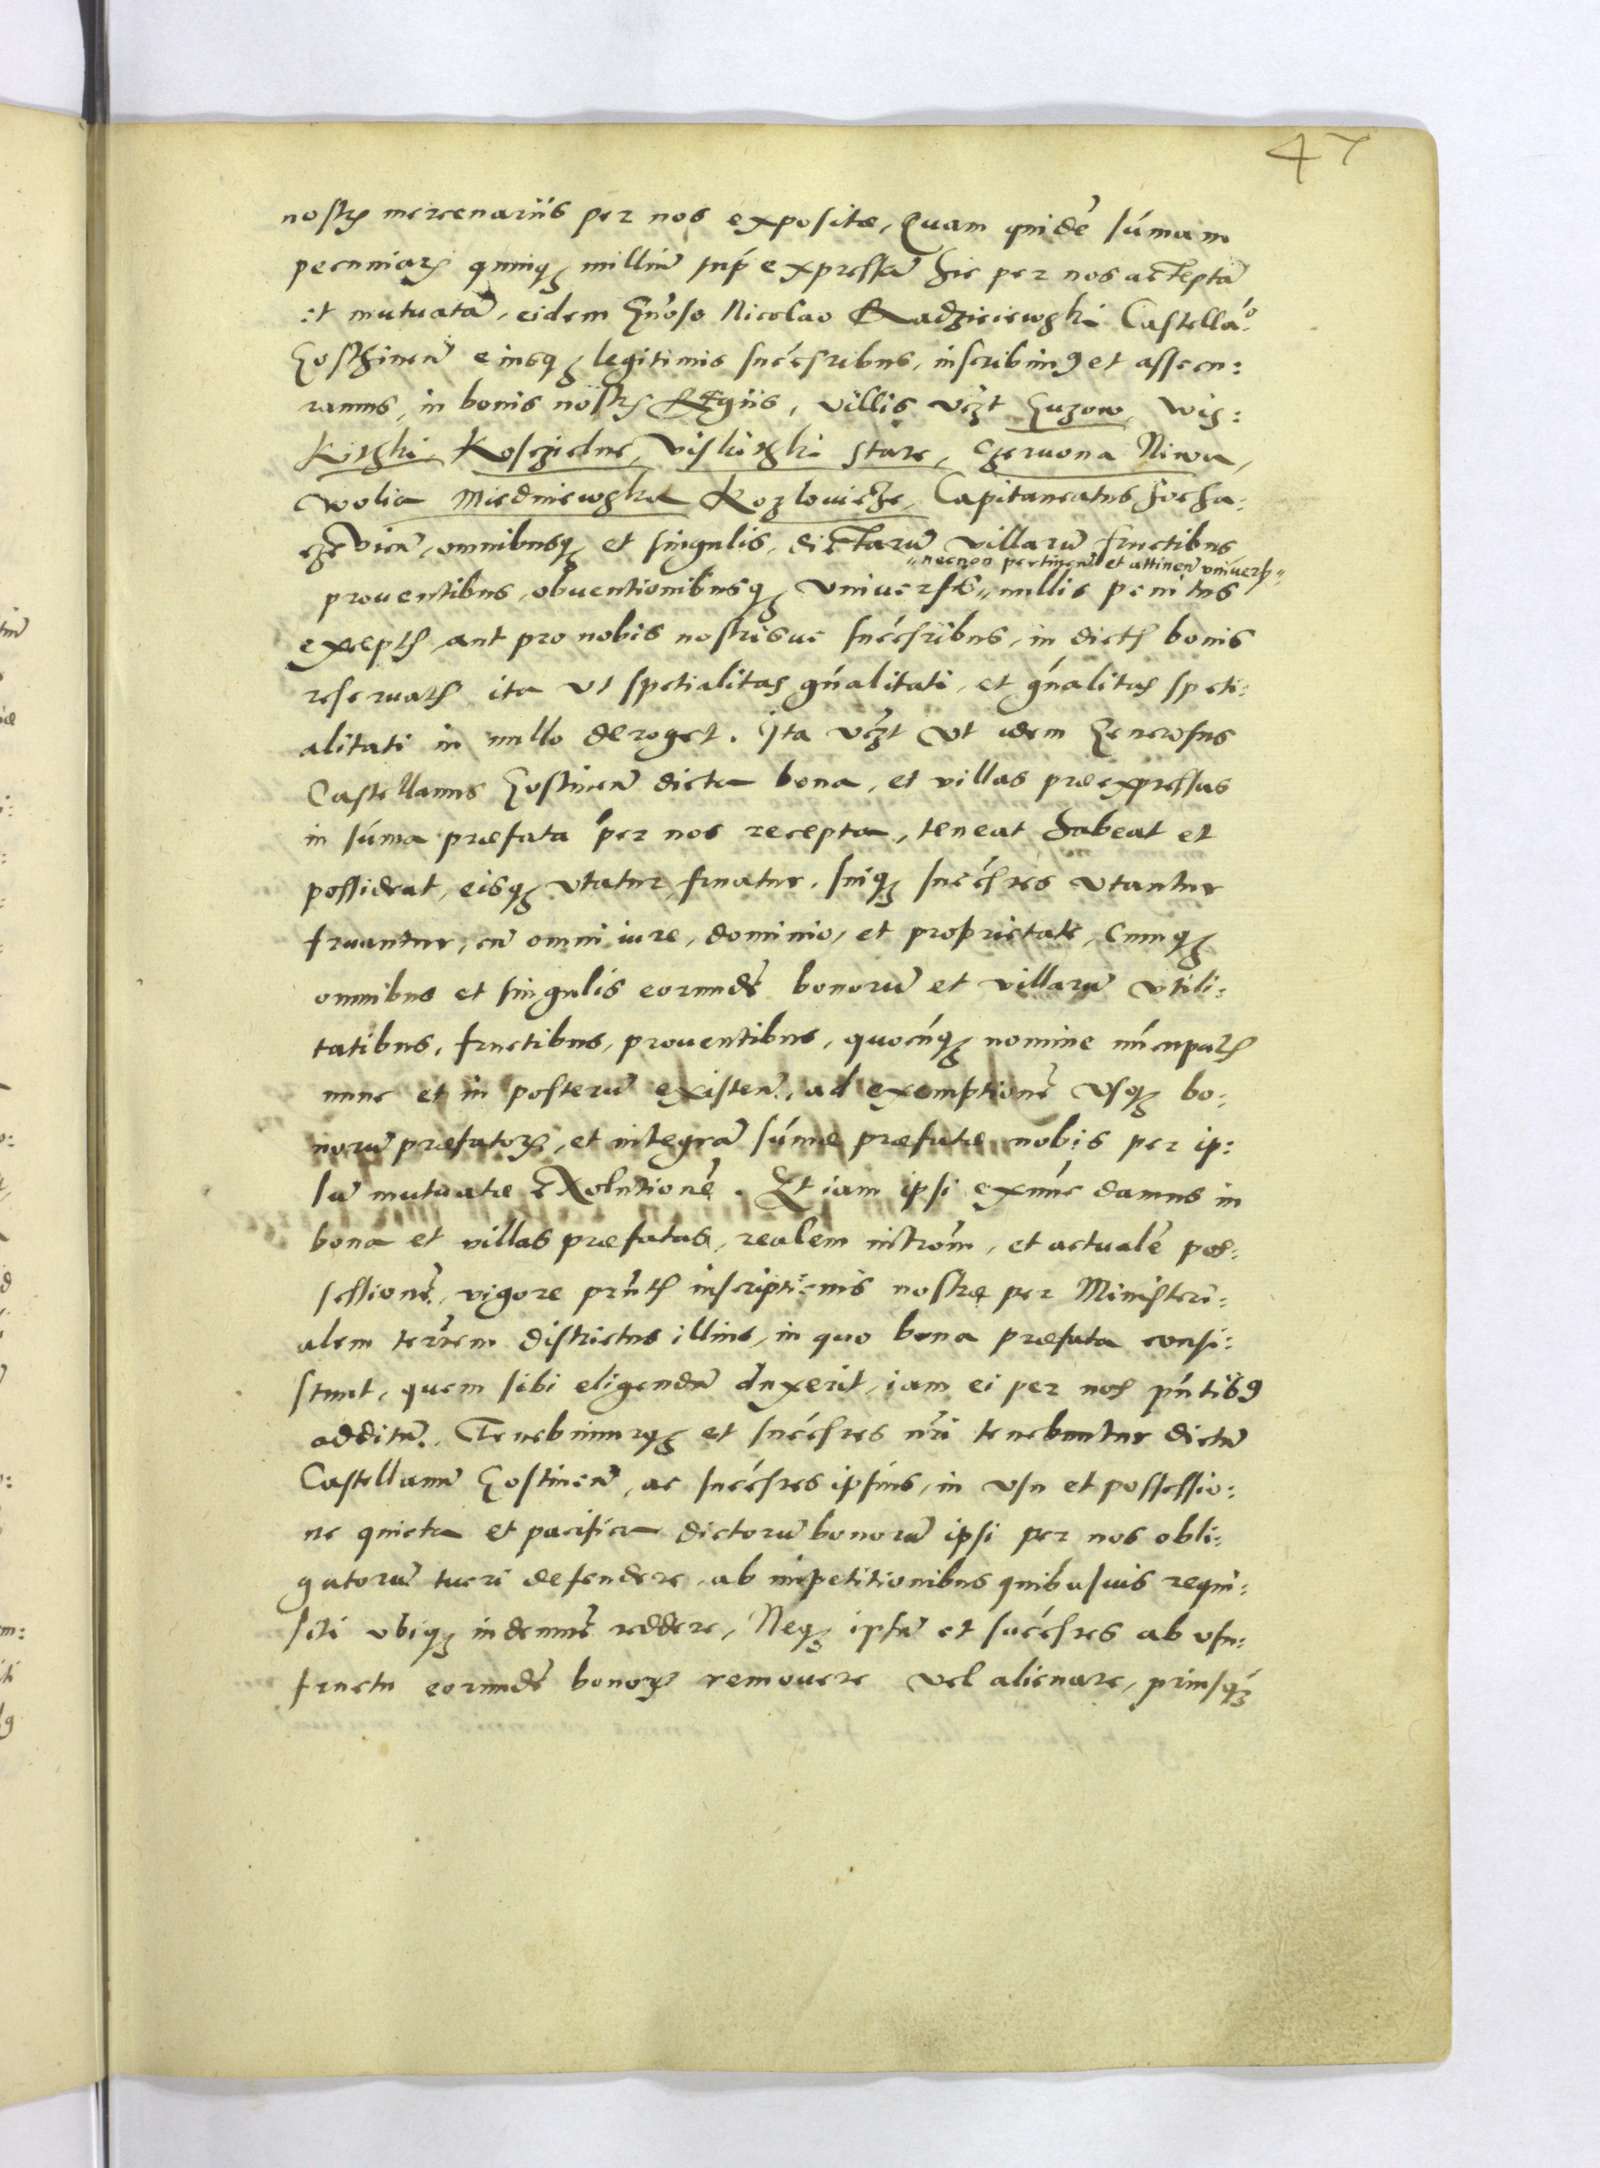 47
nostrꝭ mercenariis per nos expositæ, Quam quidē sūmam
pecuniarꝝ quinqꝫ milliū sup̄ expressā sic per nos acceptā
et mutuatā, eidem Gn̄oso Nicolao Radzieiewski Castellāo
Gostinen̄ eiusqꝫ legitimis succ̄soribus, inscribimꝰ et assecu:
ramus, in bonis nostrꝭ Regiis, villis vꝫt Guzow, Wis:
kitzki Kosczielne, Viskitzki stare, Czerwona Niwa,
Wolia Miedniewska Kozlovicze, Capitaneatus Socha:
czevien̄, omnibusqꝫ et singulis, dictarū villarū fructibus
"necnon pertinen̄ et attinen̄ universꝭ"
proventibus, obventionibusqꝫ universis "nullis penitus
exceptꝭ, aut pro nobis nostrisve succ̄soribus, in dictꝭ bonis
reservatꝭ ita ut spetialitas gn̄alitati, et gn̄alitas speti:
alitati in nullo deroget. Ita vꝫt Ut idem Generosus
Castellanus Gostinen̄ dicta bona, et villas præexpressas
in sūma præfata per nos recepta, teneat habeat et
possideat, eisqꝫ utatur fruatur, suiqꝫ succ̄sores utantur
fruantur, cū omni iure, dominio, et proprietate, Cumqꝫ
omnibus et singulis eorundē bonorū et villarū utili:
tatibus, fructibus, proventibus, quocūqꝫ nomine nūcupatꝭ
nunc et in posterū existen̄, ad exemptionē usqꝫ bo:
norū præfatorꝝ, et integrā sūmæ præfatæ nobis per ip:
sū mutuatæ exolutionē. Et iam ipsi exnūc damus in
bona et villas præfatas, realem intrōm, et actualē pos:
sessionē, vigore pn̄tꝭ inscriptionis nostræ per Ministeri:
alem terrēm districtus illius, in quo bona præfata consi:
stunt, quem sibi eligendū duxerit, iam ei per nos pn̄tibꝰ
additū. Tenebimurqꝫ et succ̄sores nr̄i tenebuntur dictū
Castellanū Gostinen̄, ac succ̄sores ipsius, in usu et possessio:
ne quieta et pacifica dictorū bonorū ipsi per nos obli:
gatorū tueri defendere, ab impetitionibus quibusvis requi:
siti ubiqꝫ indemnē reddere, Neqꝫ ipsū et succ̄sores ab usu:
fructu eorundē bonorꝝ removere vel alienare, priusqꝫ